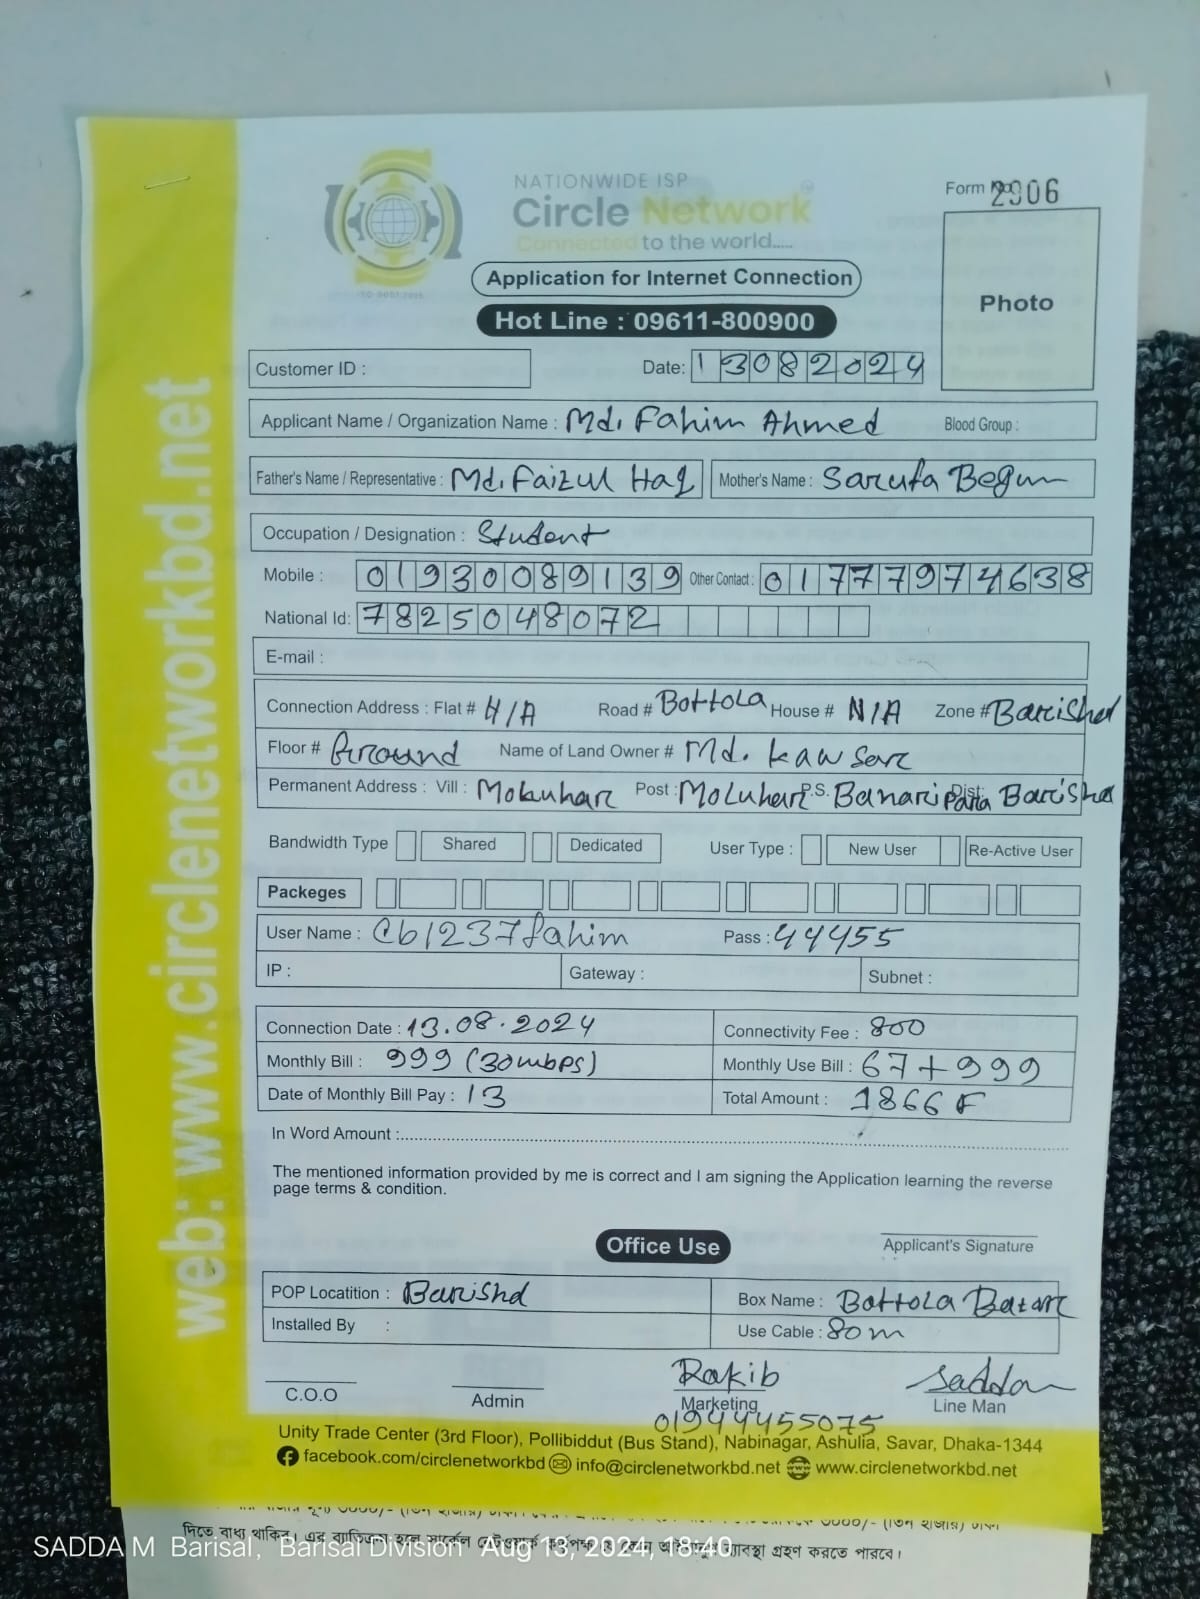 web: www.circlenetworkbd.net
NATIONWIDE ISP
Circle Network
Connected to the world.....
Form No. 2906
Application for Internet Connection
Hot Line : 09611-800900
Photo
Customer ID :
Date: 13082024
Applicant Name / Organization Name : Md. Fahim Ahmed Blood Group :
Father's Name / Representative : Md. Faizul Haq Mother's Name : Sarufa Begum
Occupation / Designation : Student
Mobile : 01930089139 Other Contact : 01777974638
National Id: 7825048072
E-mail :
Connection Address : Flat # N/A Road # Bottola House # N/A Zone # Barishal
Floor # Ground Name of Land Owner # Md. Kawsar
Permanent Address : Vill : Moluhar Post : Moluhar P.S. Banaripara Dist: Barishal
Bandwidth Type Shared Dedicated User Type : New User Re-Active User
Packeges
User Name : cb1237fahim Pass : 44455
IP : Gateway : Subnet :
Connection Date : 13.08.2024 Connectivity Fee : 800
Monthly Bill : 999 (30mbps) Monthly Use Bill : 67+999
Date of Monthly Bill Pay : 13 Total Amount : 1866
In Word Amount :
The mentioned information provided by me is correct and I am signing the Application learning the reverse
page terms & condition.
Office Use
Applicant's Signature
POP Locatition : Barishal Box Name : Bottola Bazar
Installed By : Use Cable : 80m
Rakib Saddam
C.O.O Admin Marketing Line Man
01944455075
Unity Trade Center (3rd Floor), Pollibiddut (Bus Stand), Nabinagar, Ashulia, Savar, Dhaka-1344
facebook.com/circlenetworkbd info@circlenetworkbd.net www.circlenetworkbd.net
দিতে বাধ্য থাকিব। এর ব্যতিক্রম হলে সার্কেল ব্যবস্থা গ্রহণ করতে পারবে।
SADDA M Barisal, Barisal Division Aug 13, 2024, 18:40